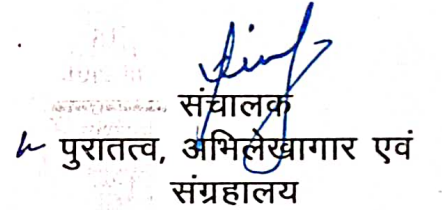 संचालक
पुरातत्व, अभिलेखागार एवं
संग्रहालय